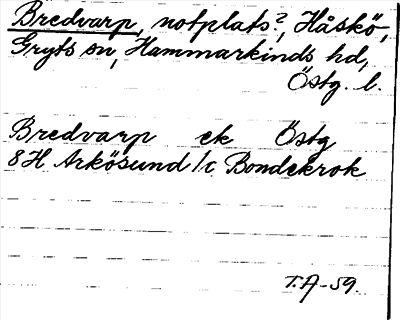 Bredvarp, notplats?, Håskö,
Gryts sn, Hammarkinds hd,
Östg. l.
Bredvarp ek Östg
8H Arkösund 1c Bondekrok
T.A-59.